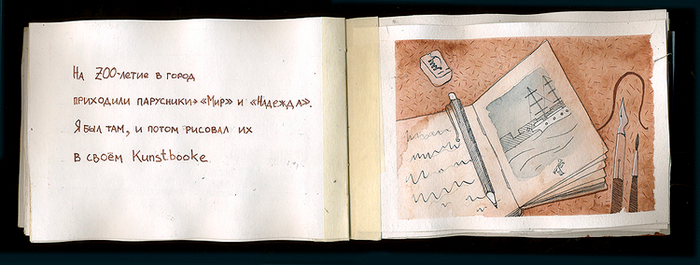 На 200-летие в город
приходили парусники «Мир» и «Надежда».
Я был там, и потом рисовал их
в своём Kunstbooke